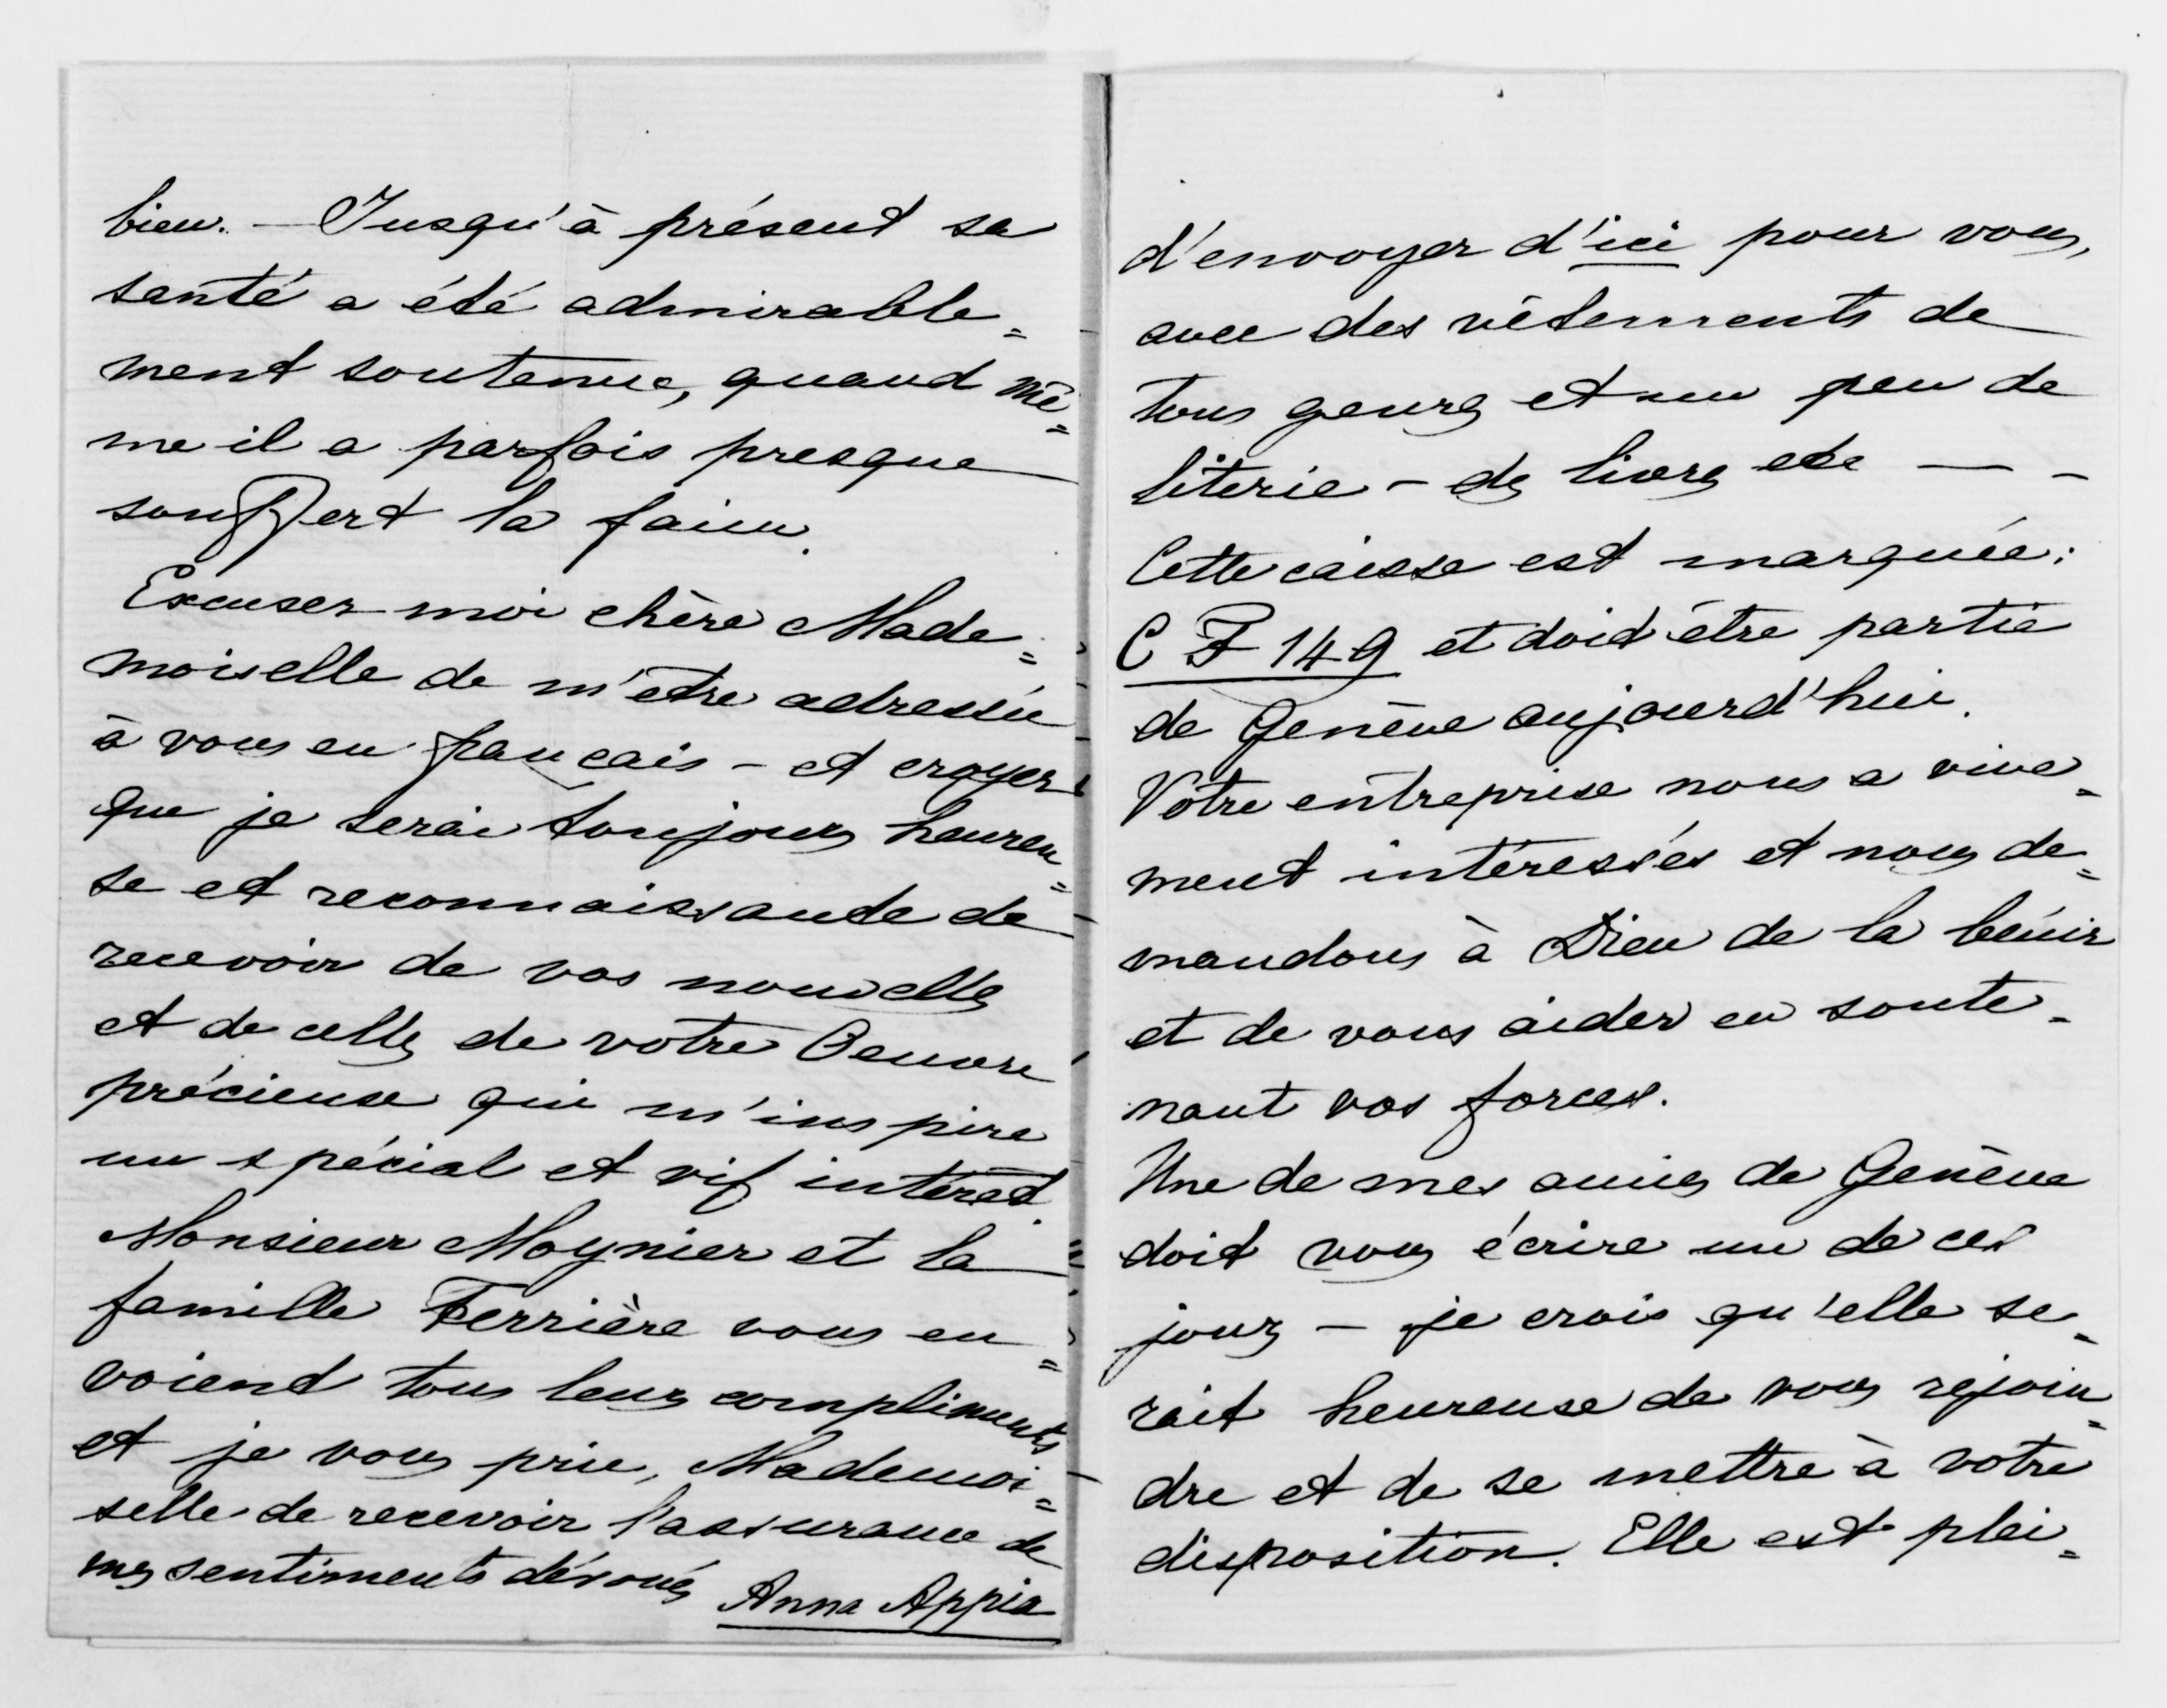 bien. — Jusqu'à présent sa
santé a été admirable=
ment soutenue, quand mê=
me il a parfois presque
souffert la faim.
Excuser moi chère Made=
moiselle de m'être adressée
à vous en français - et croyez
que je serai toujours heureu=
se et reconnaissante de
recevoir de vos nouvelles
et de celles de votre Oeuvre
précieuse qui m'inspire
un spécial et vif intérêt.
Monsieur Moynier et la
famille Ferrière vous en=
voient tous leurs compliments
et je vous prie, Mademoi=
selle de recevoir l'assurance de
mes sentiments dévoués
Anna Appia
d'envoyer d'ici pour vous,
avec des vêtements de
tous genres et un peu de
literie - des livres etc — -
Cette caisse est marquée:
C F 149 et doit être partie
de Genève aujourd'hui.
Votre entreprise nous a vive=
ment intéressés et nous de=
mandons à Dieu de la bénir
et de vous aider en soute=
nant vos forces.
Une de mes amies de Genève
doit vous écrire un de ces
jours — je crois qu'elle se=
rait heureuse de vous rejoin=
dre et de se mettre à votre
disposition. Elle est plei=